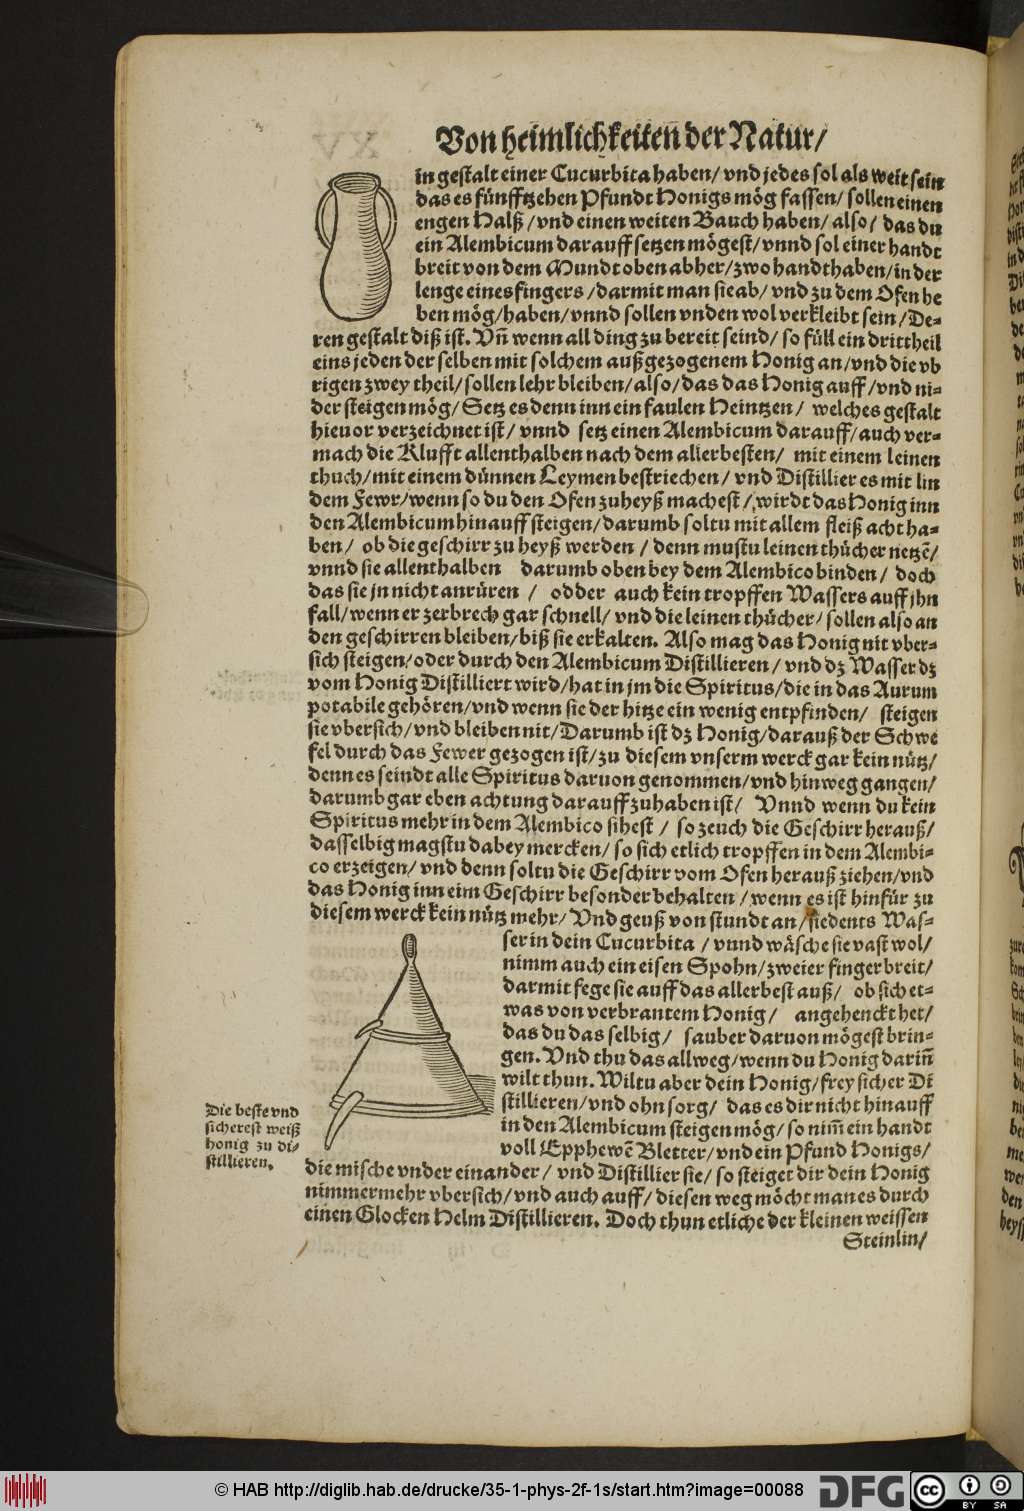 Von heimlichkeiten der Natur/
in gestalt einer Cucurbita haben/ vnd jedes sol als weit sein
das es fünfftzehen Pfundt Honigs mög fassen/ sollen einen
engen Halß/ vnd einen weiten Bauch haben/ also/ das du
ein Alembicum darauff setzen mögest/ vnnd sol einer handt
breit von dem Mundt oben abher/ zwo handthaben/ in der
lenge eines fingers/ darmit man sie ab/ vnd zu dem Ofen he
ben mög/ haben/ vnnd sollen vnden wol verkleibt sein/ De-
ren gestalt diß ist. Vñ wenn all ding zu bereit seind/ so füll ein drittheil
eins jeden der selben mit solchem außgezogenem Honig an/ vnd die vb
rigen zwey theil/ sollen lehr bleiben/ also/ das das Honig auff/ vnd ni-
der steigen mög/ Setz es denn inn ein faulen Heintzen/ welches gestalt
hieuor verzeichnet ist/ vnnd setz einen Alembicum darauff/ auch ver-
mach die Klufft allenthalben nach dem allerbesten/ mit einem leinen
thuch/ mit einem dünnen Leymen bestriechen/ vnd Distillier es mit lin
dem Fewr/ wenn so du den Ofen zu heyß machest/ wirdt das Honig inn
den Alembicum hinauff steigen/ darumb soltu mit allem fleiß acht ha-
ben/ ob die geschirr zu heyß werden/ denn mustu leinen thücher netzē/
vnnd sie allenthalben darumb oben bey dem Alembico binden/ doch
das sie jn nicht anrüren/ odder auch kein tropffen Wassers auff jhn
fall/ wenn er zerbrech gar schnell/ vnd die leinen thücher/ sollen also an
den geschirren bleiben/ biß sie erkalten. Also mag das Honig nit vber-
sich steigen/ oder durch den Alembicum Distillieren/ vnd dz Wasser dz
vom Honig Distilliert wird/ hat in jm die Spiritus/ die in das Aurum
potabile gehören/ vnd wenn sie der hitze ein wenig entpfinden/ steigen
sie vbersich/ vnd bleiben nit/ Darumb ist dz Honig/ darauß der Schwe
fel durch das Fewer gezogen ist/ zu diesem vnserm werck gar kein nütz/
denn es seindt alle Spiritus daruon genommen/ vnd hinweg gangen/
darumb gar eben achtung darauff zuhaben ist/ Vnnd wenn du kein
Spiritus mehr in dem Alembico sihest/ so zeuch die Geschirr herauß/
dasselbig magstu dabey mercken/ so sich etlich tropffen in dem Alembi-
co erzeigen/ vnd denn soltu die Geschirr vom Ofen herauß ziehen/ vnd
das Honig inn eim Geschirr besonder behalten/ wenn es ist hinfür zu
diesem werck kein nütz mehr/ Vnd geuß von stundt an/ siedents Was-
ser in dein Cucurbita/ vnnd wäsche sie vast wol/
nimm auch ein eisen Spohn/ zweier finger breit/
darmit fege sie auff das allerbest auß/ ob sich et-
was von verbrantem Honig/ angehenckt het/
das du das selbig/ sauber daruon mögest brin-
gen. Vnd thu das allweg/ wenn du Honig darinn̄
wilt thun. Wiltu aber dein Honig/ frey sicher Di
stillieren/ vnd ohn sorg/ das es dir nicht hinauff
in den Alembicum steigen mög/ so nim̄ ein handt
voll Epphewē Bletter/ vnd ein Pfund Honigs/
die mische vnder einander/ vnd Distillier sie/ so steiget dir dein Honig
nimmermehr vbersich/ vnd auch auff/ diesen weg möcht man es durch
einen Glocken Helm Distillieren. Doch thun etliche der kleinen weissen
Steinlin/
Die beste vnd
sicherest weiß
honig zu di-
stillieren.
© HAB http://diglib.hab.de/drucke/35-1-phys-2f-1s/start.htm?image=00088
DFG
cc
BY SA